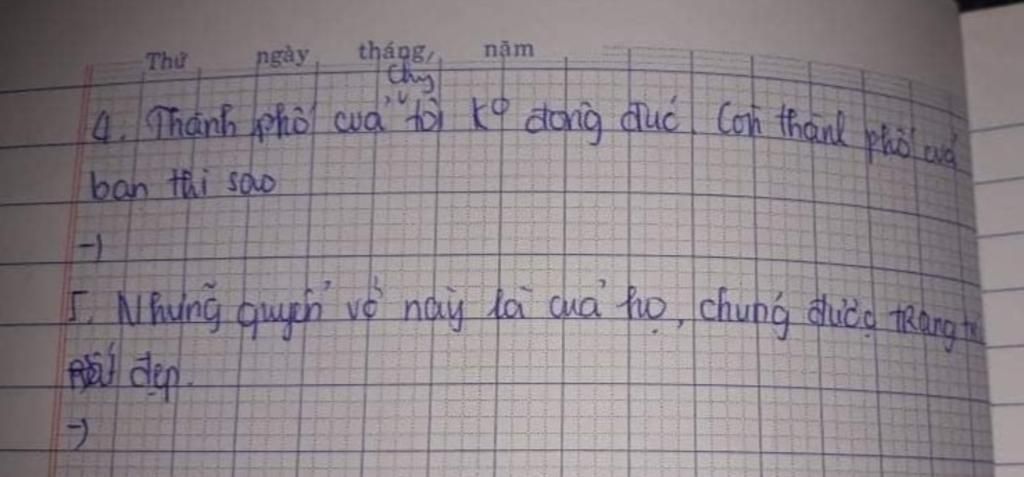 Thứ ngày tháng năm
chúng
4. Thành phố của tôi ko đông đúc. Còn thành phố của
bạn thì sao
→
5. Những quyển vở này là của họ, chúng được trang trí
rất đẹp.
→